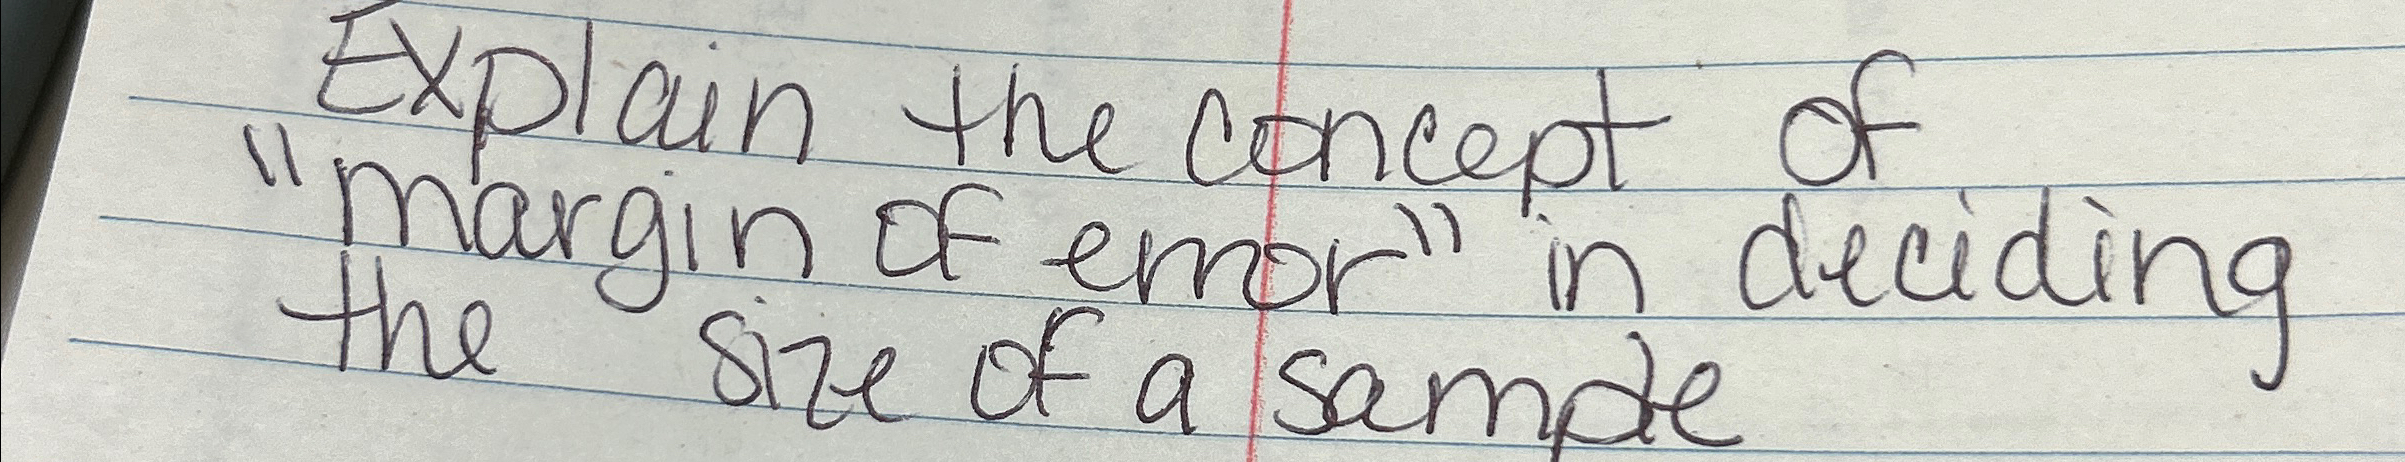 Explain the concept of
"margin of error" in deciding
the size of a sample